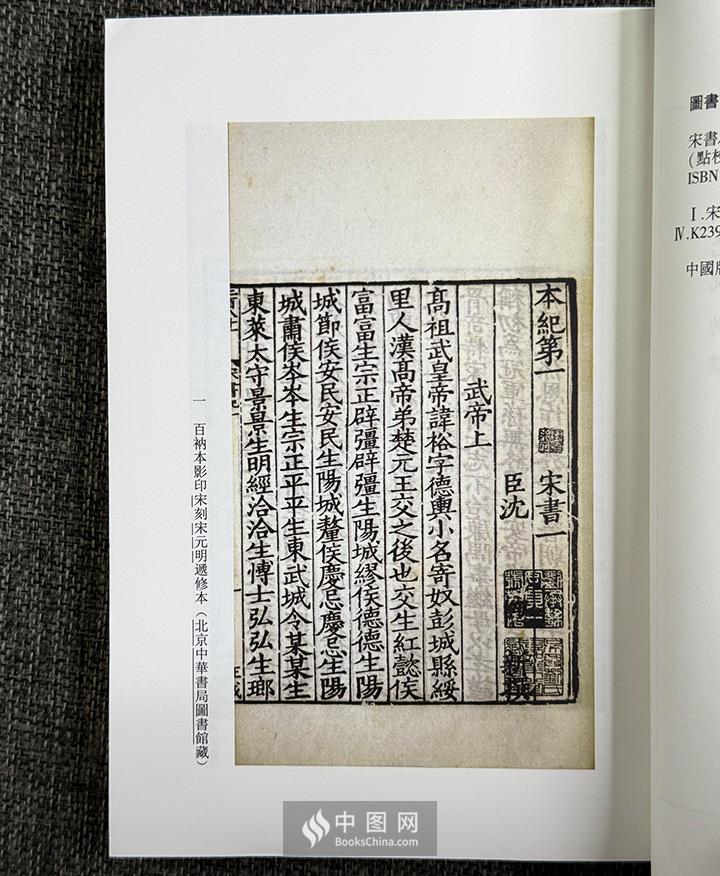 本紀第一 宋書一
臣沈 新撰
武帝上
高祖武皇帝諱裕字德輿小名寄奴彭城縣綏
里人漢高帝弟楚元王交之後也交生紅懿侯
富富生宗正辟彊辟彊生陽城繆侯德德生陽
城節侯安民安民生陽城釐侯慶忌慶忌生陽
城肅侯岑岑生宗正平平生東武城令某某生
東萊太守景景生明經洽洽生博士弘弘生瑯
一 百衲本影印宋刻宋元明遞修本（北京中華書局圖書館藏）
圖書
宋書
(點校
ISBN
Ⅰ.宋
Ⅳ.K239
中國版
中图网
BooksChina.com